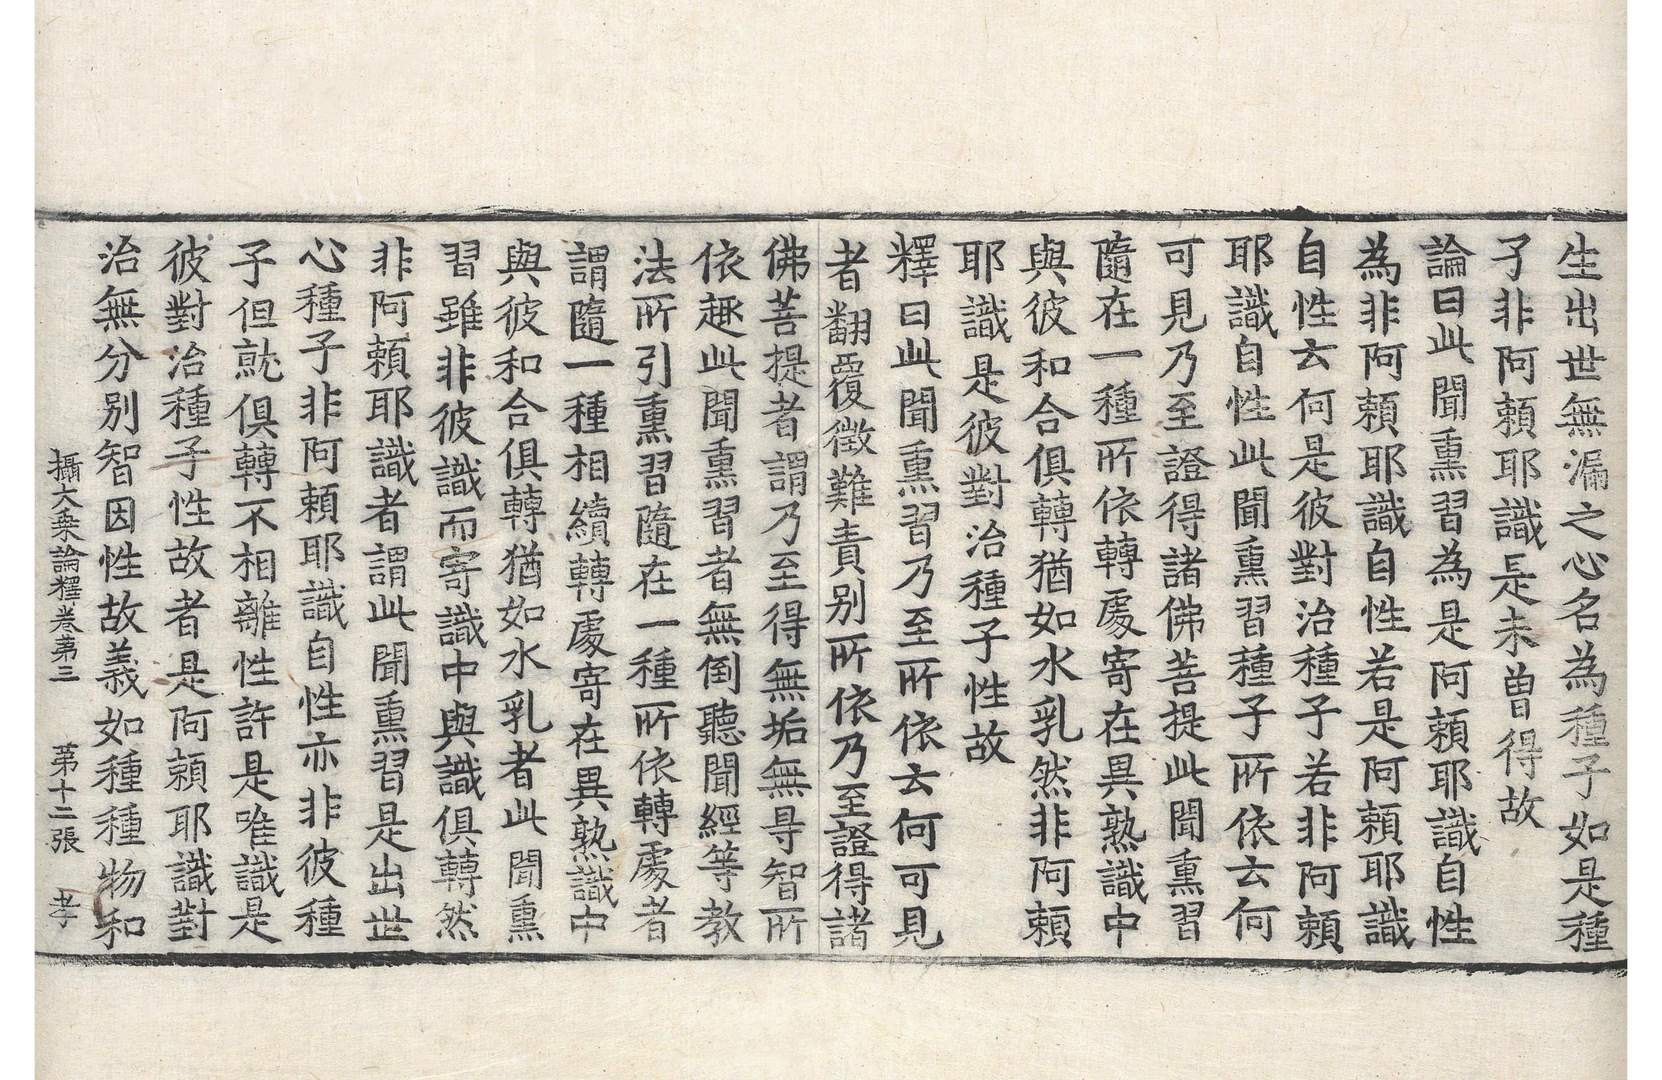 生出世無漏之心名為種子如是種
子非阿賴耶識是未曾得故
論曰此聞熏習為是阿賴耶識自性
為非阿賴耶識自性若是阿賴耶識
自性云何是彼對治種子若非阿賴
耶識自性此聞熏習種子所依云何
可見乃至證得諸佛菩提此聞熏習
隨在一種所依轉處寄在異熟識中
與彼和合俱轉猶如水乳然非阿賴
耶識是彼對治種子性故
釋曰此聞熏習乃至所依云何可見
者翻覆徵難責別所依乃至證得諸
佛菩提者謂乃至得無垢無㝵智所
依趣此聞熏習者無倒聽聞經等教
法所引熏習隨在一種所依轉處者
謂隨一種相續轉處寄在異熟識中
與彼和合俱轉猶如水乳者此聞熏
習雖非彼識而寄識中與識俱轉然
非阿賴耶識者謂此聞熏習是出世
心種子非阿賴耶識自性亦非彼種
子但就俱轉不相離性許是唯識是
彼對治種子性故者是阿賴耶識對
治無分别智因性故義如種種物和
攝大乘論釋卷第三 第十二張 孝